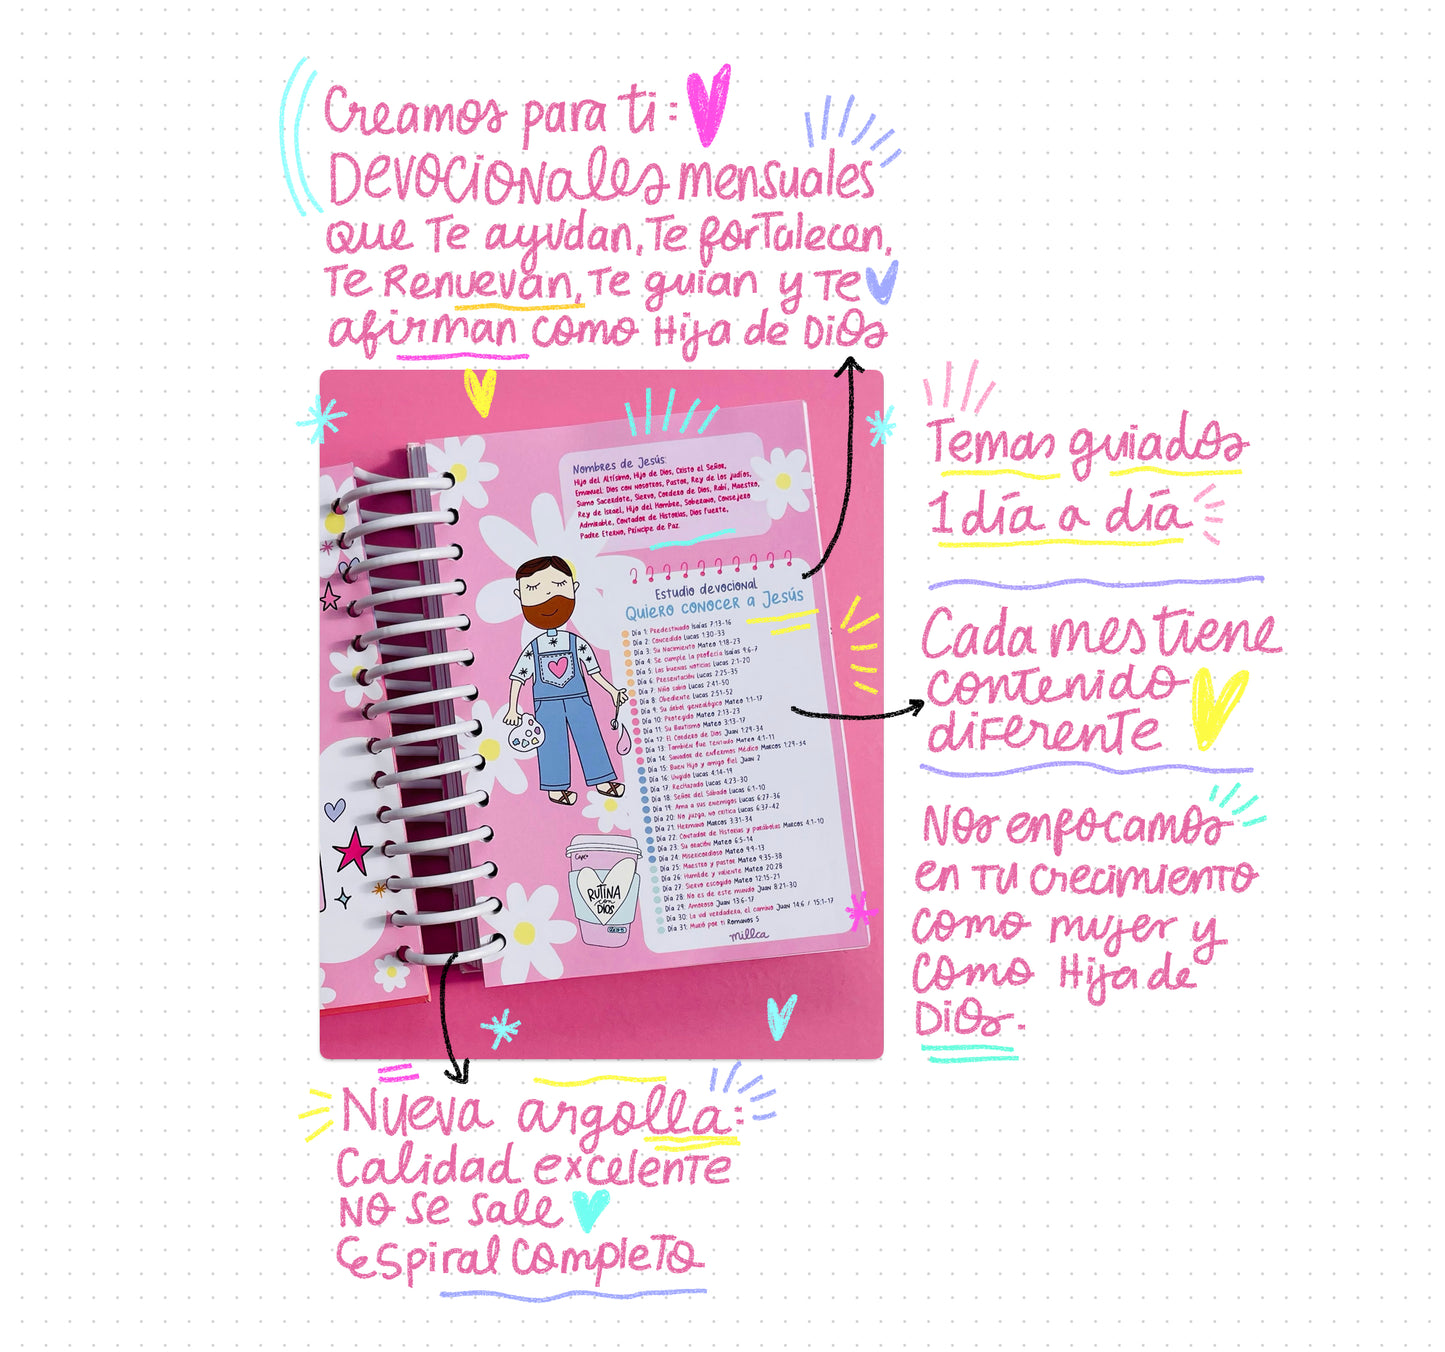 Creamos para ti:
Devocionales mensuales
que te ayudan, te fortalecen,
te Renuevan, te guían y te
afirman como Hija de Dios
Nombres de Jesús:
Hijo del Altísimo, Hijo de Dios, Cristo el Señor,
Emanuel: Dios con nosotros, Pastor, Rey de los judíos,
Sumo Sacerdote, Siervo, Cordero de Dios, Rabí, Maestro,
Rey de Israel, Hijo del Hombre, Soberano, Consejero
Admirable, Contador de Historias, Dios Fuerte,
Padre Eterno, Príncipe de Paz.
Estudio devocional
Quiero conocer a Jesús
Día 1: Predestinado Isaías 7:13-16
Día 2: Concedido Lucas 1:30-33
Día 3: Su Nacimiento Mateo 1:18-23
Día 4: Se cumple la profecía Isaías 9:6-7
Día 5: Las buenas noticias Lucas 2:1-20
Día 6: Presentación Lucas 2:25-35
Día 7: Niño sabio Lucas 2:41-50
Día 8: Obediente Lucas 2:51-52
Día 9: Su árbol genealógico Mateo 1:1-17
Día 10: Protegido Mateo 2:13-23
Día 11: Su Bautismo Mateo 3:13-17
Día 12: El Cordero de Dios Juan 1:29-34
Día 13: También fue tentado Mateo 4:1-11
Día 14: Sanador de enfermos Médico Marcos 1:29-34
Día 15: Buen Hijo y amigo fiel Juan 2
Día 16: Ungido Lucas 4:14-19
Día 17: Rechazado Lucas 4:23-30
Día 18: Señor del Sábado Lucas 6:1-10
Día 19: Ama a sus enemigos Lucas 6:27-36
Día 20: No juzga, no critica Lucas 6:37-42
Día 21: Hermano Marcos 3:31-34
Día 22: Contador de Historias y parábolas Marcos 4:1-10
Día 23: Su oración Mateo 6:5-14
Día 24: Misericordioso Mateo 9:9-13
Día 25: Maestro y pastor Mateo 9:35-38
Día 26: Humilde y valiente Mateo 20:28
Día 27: Siervo escogido Mateo 12:15-21
Día 28: No es de este mundo Juan 8:21-30
Día 29: Amoroso Juan 13:6-17
Día 30: La vid verdadera, el camino Juan 14:6 / 15:1-17
Día 31: Murió por ti Romanos 5
millca
Rutina
con
Dios
Temas guiados
1 día a día
Cada mes tiene
contenido
diferente
Nos enfocamos
en tu crecimiento
como mujer y
como Hija de
Dios.
Nueva argolla:
Calidad excelente
no se sale
espiral completo